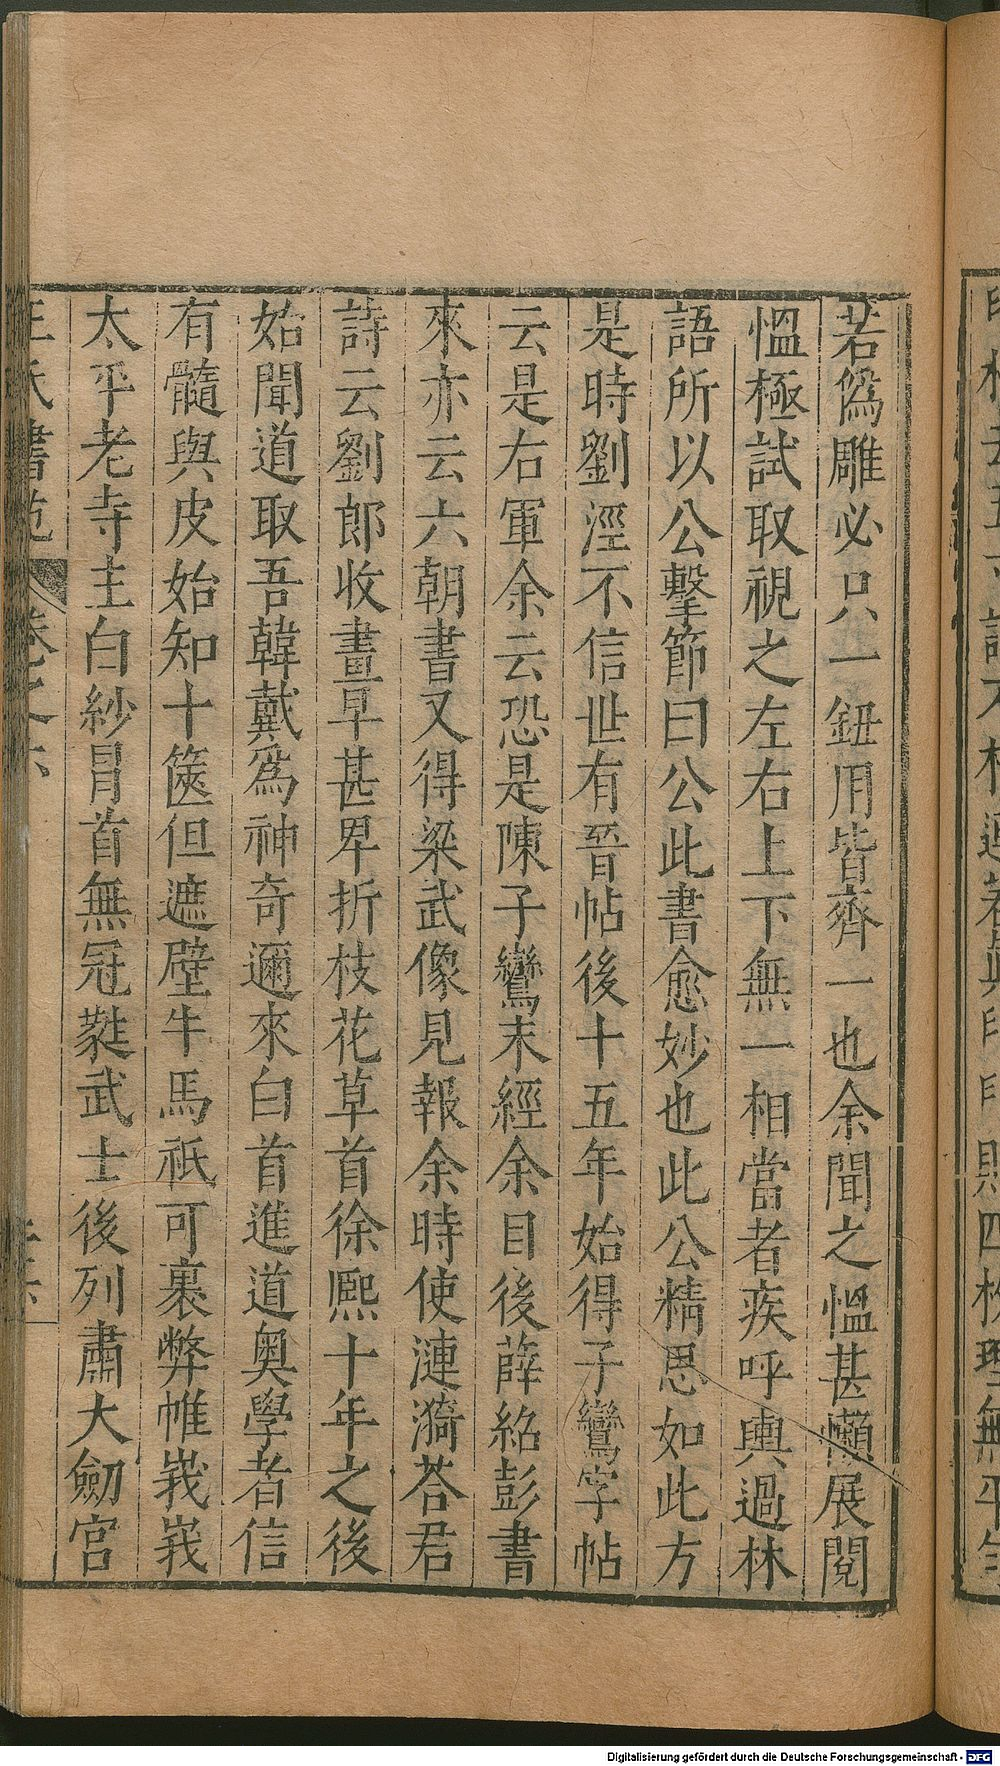 若僞雕必只一鈕用皆齊一也余聞之慍甚懶展閱
慍極試取視之左右上下無一相當者疾呼輿過林
語所以公擊節曰公此書愈妙也此公精思如此方
是時劉涇不信世有晉帖後十五年始得子鸞字帖
云是右軍余云恐是陳子鸞末經余目後薛紹彭書
來亦云六朝書又得梁武像見報余時使漣漪荅君
詩云劉郎收畫早甚卑折枝花草首徐熙十年之後
始聞道取吾韓戴爲神奇邇來白首進道奧學者信
有髓與皮始知十篋但遮壁牛馬祇可裹弊帷峩峩
太平老寺主白紗冐首無冠蕤武士後列肅大劒宮
王氏書苑 卷之六
Digitalisierung gefördert durch die Deutsche Forschungsgemeinschaft - DFG